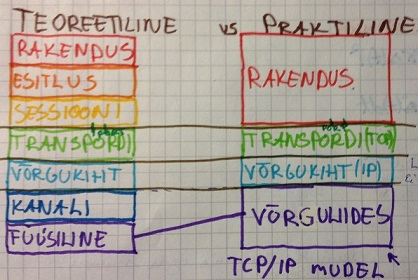 TEOREETILINE vs PRAKTILINE
RAKENDUS
ESITLUS
SESSIOONI
TRANSPORDI
VÕRGUKIHT
KANALI
FÜÜSILINE
RAKENDUS
TRANSPORDI(TCP)
VÕRGUKIHT(IP)
VÕRGULIIDES
TCP/IP MUDEL